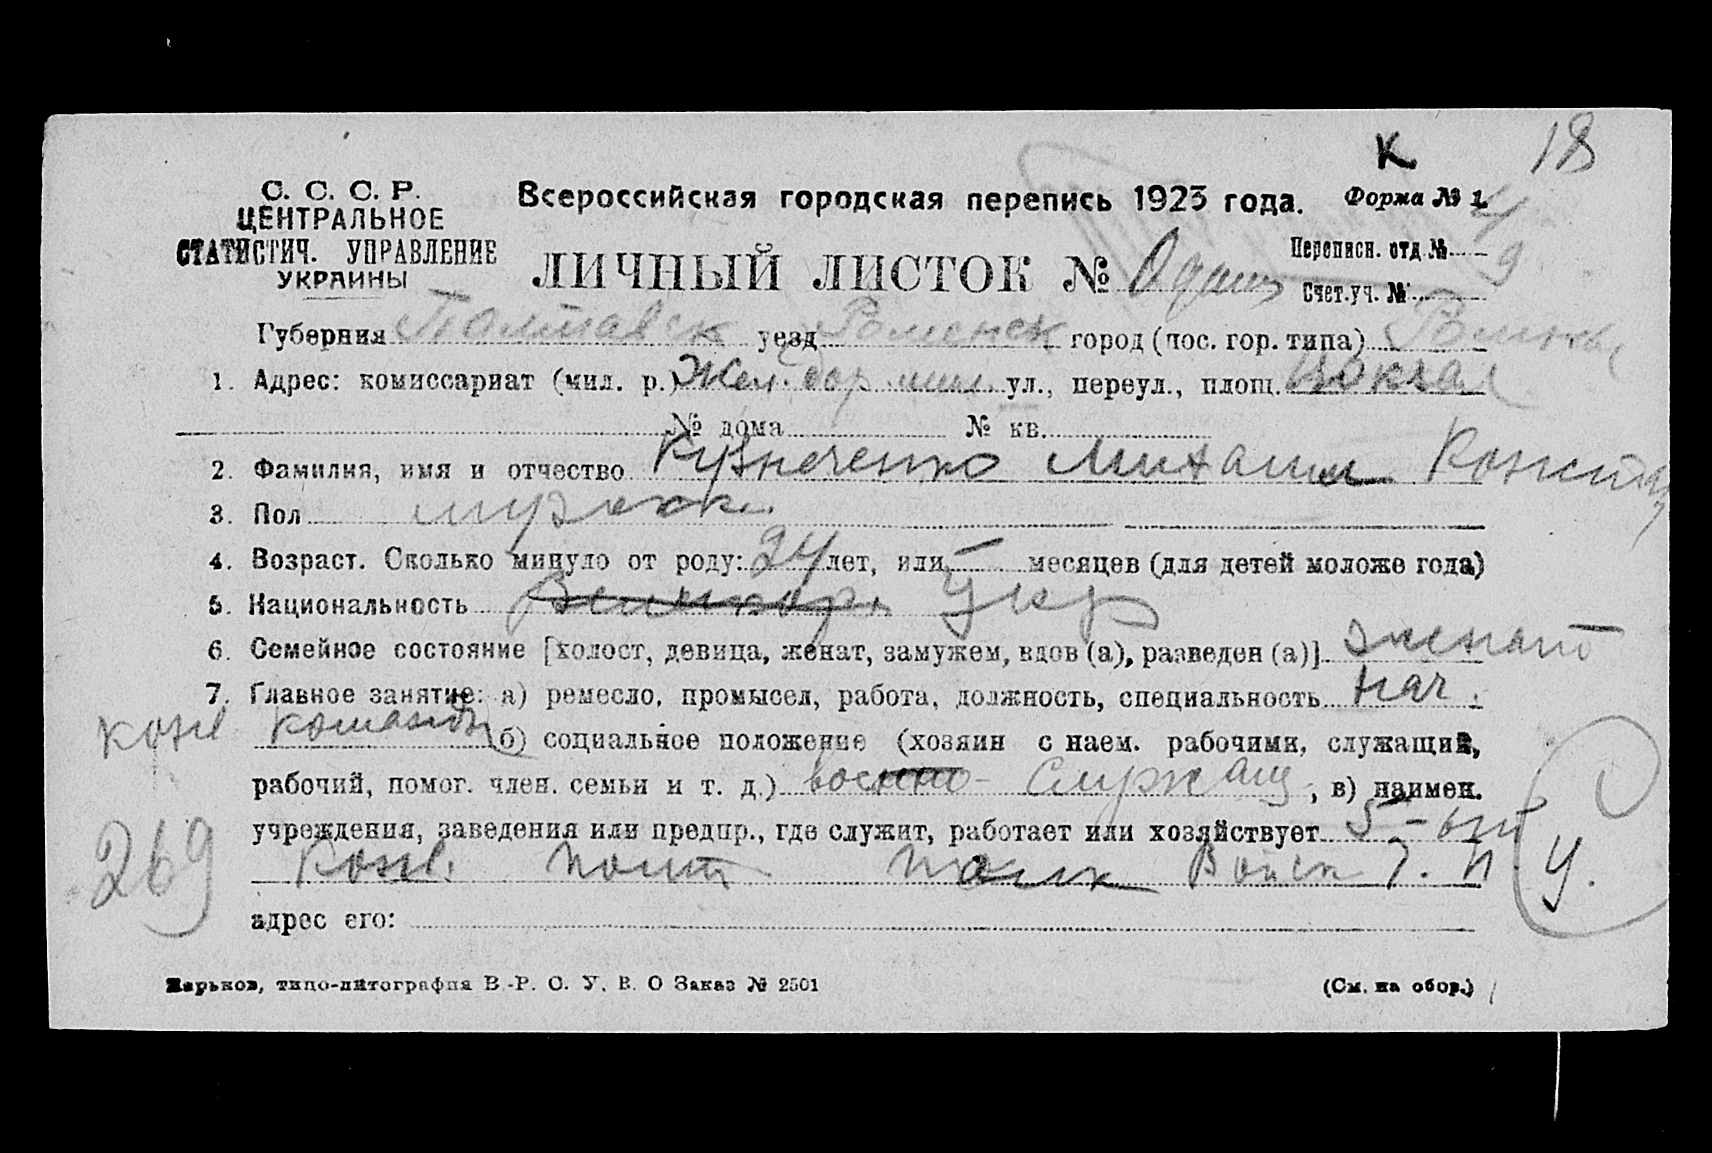 К 18
С. С. С. Р.
ЦЕНТРАЛЬНОЕ
СТАТИСТИЧ. УПРАВЛЕНИЕ
УКРАИНЫ
Всероссийская городская перепись 1923 года.
Форма № 1.
ЛИЧНЫЙ ЛИСТОК № Один
Переписн. отд. № 4
Счет. уч. № 9
Губерния Полтавск уезд Роменск город (пос. гор. типа) Ромны
1. Адрес: комиссариат (мил. р.) Жел. дор. мил. ул., переул., площ. Вокзал
№ дома № кв.
2. Фамилия, имя и отчество Михаил
3. Пол мужск.
4. Возраст. Сколько минуло от роду: 24 лет, или — месяцев (для детей моложе года)
5. Национальность Укр
6. Семейное состояние [холост, девица, женат, замужем, вдов (а), разведен (а)] женат
7. Главное занятие: а) ремесло, промысел, работа, должность, специальность нач.
конв команды б) социальное положение (хозяин с наем. рабочими, служащий,
рабочий, помог. член. семьи и т. д.) военно-служащ, в) наимен.
учреждения, заведения или предпр., где служит, работает или хозяйствует 5-ый
Конв. полк Войск Г. П. У.
269
адрес его:
Харьков, типо-литография В.-Р. С. У. В. О Заказ № 2501
(См. на обор.)